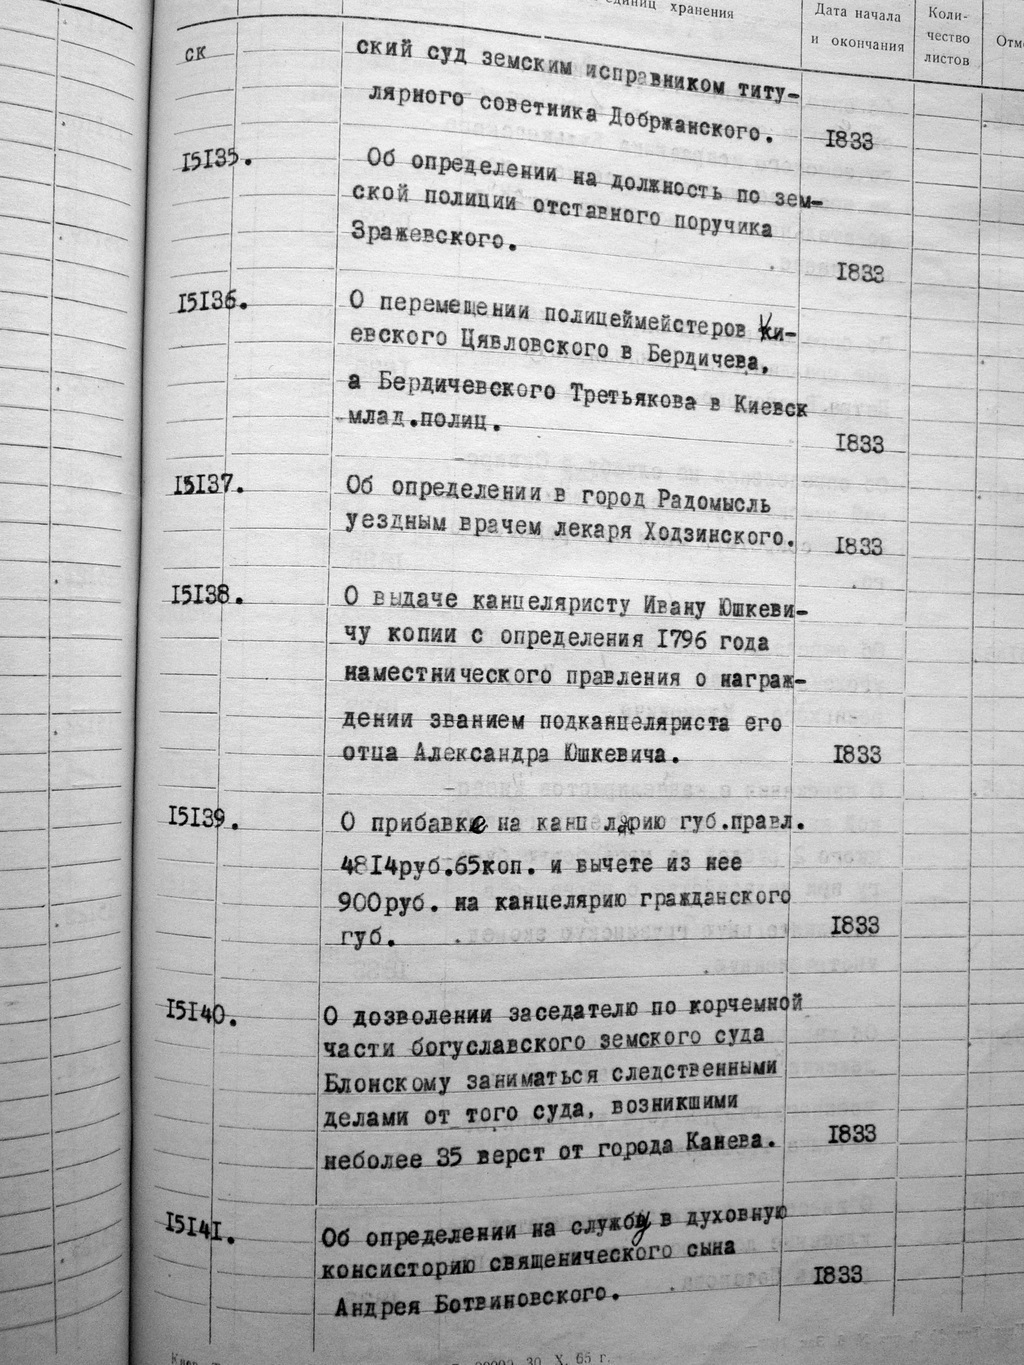 единиц хранения
Дата начала
и окончания
Коли-
чество
листов
ск
ский суд земским исправником титу-
лярного советника Добржанского.
1833
15135.
Об определении на должность по зем-
ской полиции отставного поручика
Зражевского.
1833
15136.
О перемещении полицеймейстеров Ки-
евского Цявловского в Бердичева,
а Бердичевского Третьякова в Киевск
млад.полиц.
1833
15137.
Об определении в город Радомысль
уездным врачем лекаря Ходзинского.
1833
15138.
О выдаче канцеляристу Ивану Юшкеви-
чу копии с определения 1796 года
наместнического правления о награж-
дении званием подканцеляриста его
отца Александра Юшкевича.
1833
15139.
О прибавке на канц лярию губ.правл.
4814руб.65коп. и вычете из нее
900руб. на канцелярию гражданского
губ.
1833
15140.
О дозволении заседателю по корчемной
части богуславского земского суда
Блонскому заниматься следственными
делами от того суда, возникшими
неболее 35 верст от города Канева.
1833
15141.
Об определении на службу в духовную
консисторию священического сына
Андрея Ботвиновского.
1833
30. X. 65 г.